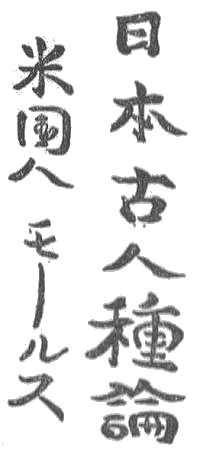 日本古人種論
米国人モールス